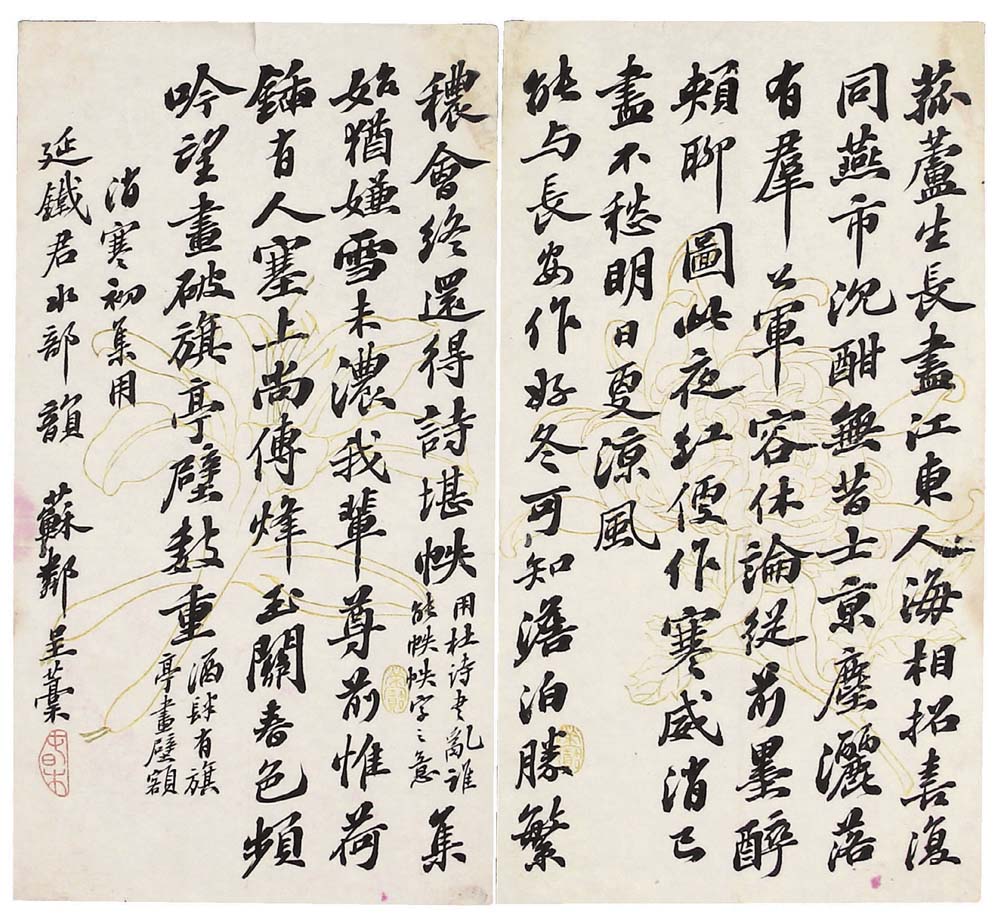 菰蘆生長盡江東人海相招喜復
同燕市沉酣無昔士京塵灑落
有羣公軍容休論從前墨醉
頰聊圖此夜紅便作寒威消已
盡不愁明日更涼風
能与長安作好冬可知澹泊勝繁
穠會終還得詩堪帙用杜诗书亂谁能帙帙字之意集
始猶嫌雪未濃我輩尊前惟荷
鍤有人塞上尚傳烽玉關春色頻
吟望畫破旗亭壁数重酒肆有旗亭畫壁额
消寒初集用
延鐵君水部韻 蘇鄰呈藁